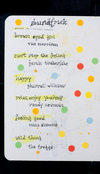 soundtrack
brown eyed girl
van morrison
can't stop the feeling
justin timberlake
happy
pharrell williams
randy newman
feeling good
nina simone
wild thing
the troggs